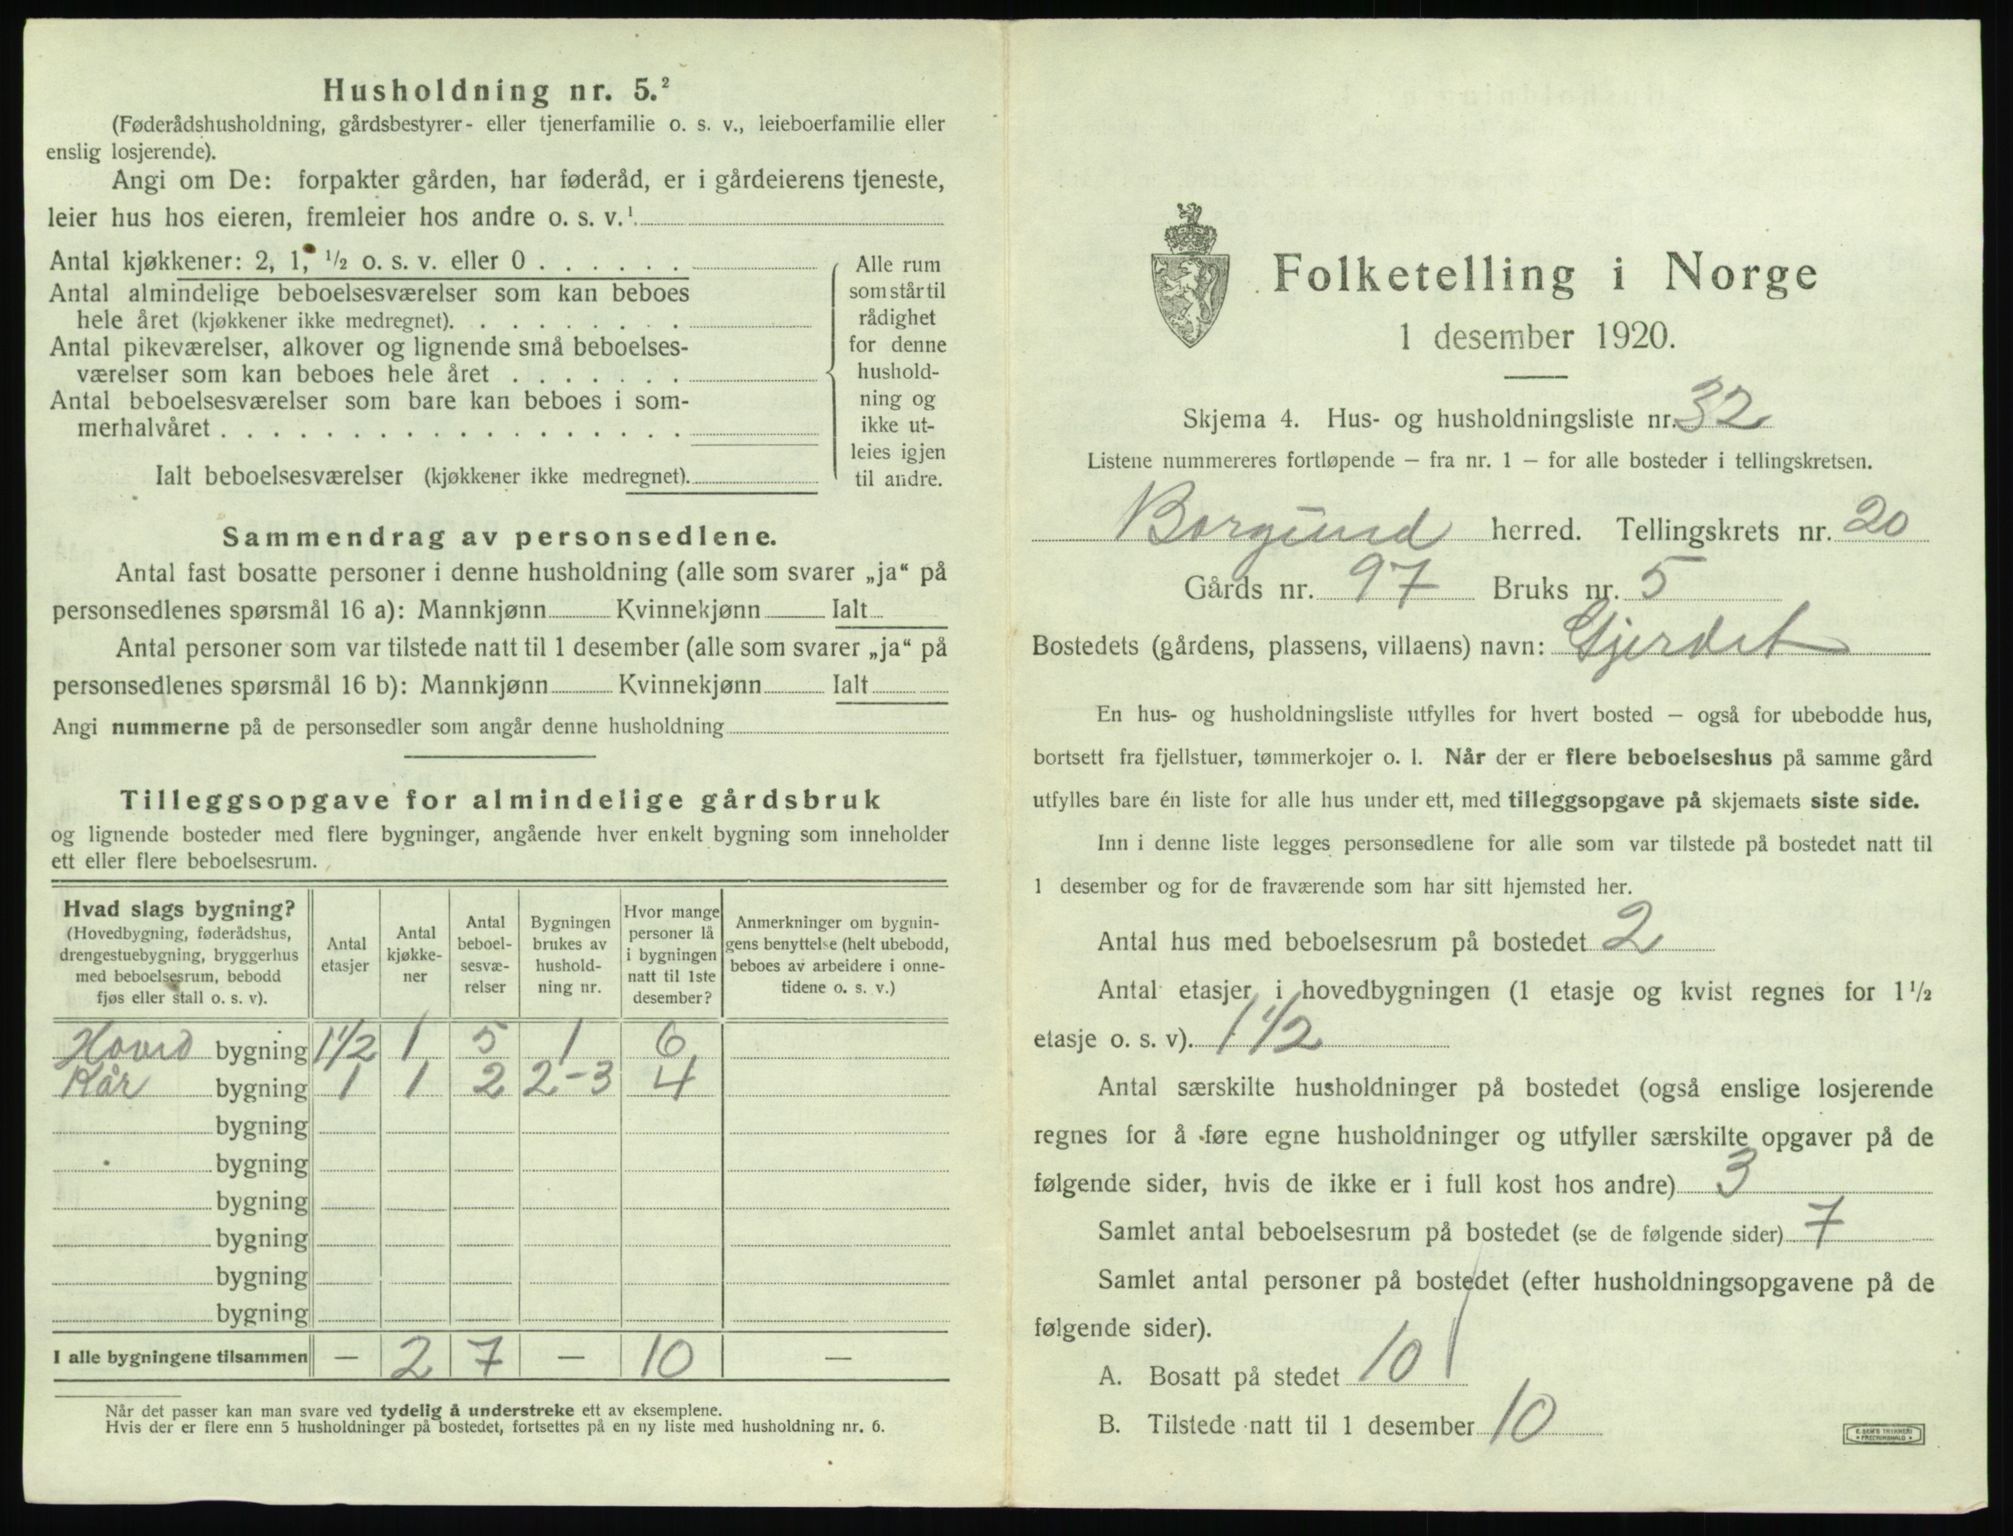 Husholdning nr. 5.²
(Føderådshusholdning, gårdsbestyrer- eller tjenerfamilie o. s. v., leieboerfamilie eller
enslig losjerende).
Angi om De: forpakter gården, har føderåd, er i gårdeierens tjeneste,
leier hus hos eieren, fremleier hos andre o. s. v.¹
Antal kjøkkener: 2, 1, ½ o. s. v. eller 0 . . . . . .
Antal almindelige beboelsesværelser som kan beboes
hele året (kjøkkener ikke medregnet). . . . . . . . .
Antal pikeværelser, alkover og lignende små beboelses-
værelser som kan beboes hele året . . . . . . .
Antal beboelsesværelser som bare kan beboes i som-
merhalvåret . . . . . . . . . . . . . . . . . .
Ialt beboelsesværelser (kjøkkener ikke medregnet).
Alle rum
som står til
rådighet
for denne
hushold-
ning og
ikke ut-
leies igjen
til andre.
Sammendrag av personsedlene.
Antal fast bosatte personer i denne husholdning (alle som svarer „ja“ på
personsedlenes spørsmål 16 a): Mannkjønn Kvinnekjønn Ialt
Antal personer som var tilstede natt til 1 desember (alle som svarer „ja“ på
personsedlenes spørsmål 16 b): Mannkjønn Kvinnekjønn Ialt
Angi nummerne på de personsedler som angår denne husholdning
Tilleggsopgave for almindelige gårdsbruk
og lignende bosteder med flere bygninger, angående hver enkelt bygning som inneholder
ett eller flere beboelsesrum.
Hvad slags bygning?
(Hovedbygning, føderådshus,
drengestuebygning, bryggerhus
med beboelsesrum, bebodd
fjøs eller stall o. s. v).
Antal
etasjer
Antal
kjøkke-
ner
Antal
beboel-
sesvæ-
relser
Bygningen
brukes av
hushold-
ning nr.
Hvor mange
personer lå
i bygningen
natt til 1ste
desember?
Anmerkninger om bygnin-
gens benyttelse (helt ubebodd,
beboes av arbeidere i onne-
tidene o. s. v.)
Hoved bygning 1½ 1 5 1 6
Kår bygning 1 1 2 2-3 4
bygning
bygning
bygning
bygning
bygning
bygning
I alle bygningene tilsammen — 2 7 — 10 —
Når det passer kan man svare ved tydelig å understreke ett av eksemplene.
Hvis der er flere enn 5 husholdninger på bostedet, fortsettes på en ny liste med husholdning nr. 6.
Folketelling i Norge
1 desember 1920.
Skjema 4. Hus- og husholdningsliste nr. 32
Listene nummereres fortløpende – fra nr. 1 – for alle bosteder i tellingskretsen.
Borgund herred. Tellingskrets nr. 20
Gårds nr. 97 Bruks nr. 5
Bostedets (gårdens, plassens, villaens) navn: Gjerdet
En hus- og husholdningsliste utfylles for hvert bosted – også for ubebodde hus,
bortsett fra fjellstuer, tømmerkojer o. l. Når der er flere beboelseshus på samme gård
utfylles bare én liste for alle hus under ett, med tilleggsopgave på skjemaets siste side.
Inn i denne liste legges personsedlene for alle som var tilstede på bostedet natt til
1 desember og for de fraværende som har sitt hjemsted her.
Antal hus med beboelsesrum på bostedet 2
Antal etasjer i hovedbygningen (1 etasje og kvist regnes for 1½
etasje o. s. v). 1½
Antal særskilte husholdninger på bostedet (også enslige losjerende
regnes for å føre egne husholdninger og utfyller særskilte opgaver på de
følgende sider, hvis de ikke er i full kost hos andre) 3
Samlet antal beboelsesrum på bostedet (se de følgende sider) 7
Samlet antal personer på bostedet (efter husholdningsopgavene på de
følgende sider).
A. Bosatt på stedet 10
B. Tilstede natt til 1 desember 10
E. SEM'S TRYKKERI
FREDRIKSHALD